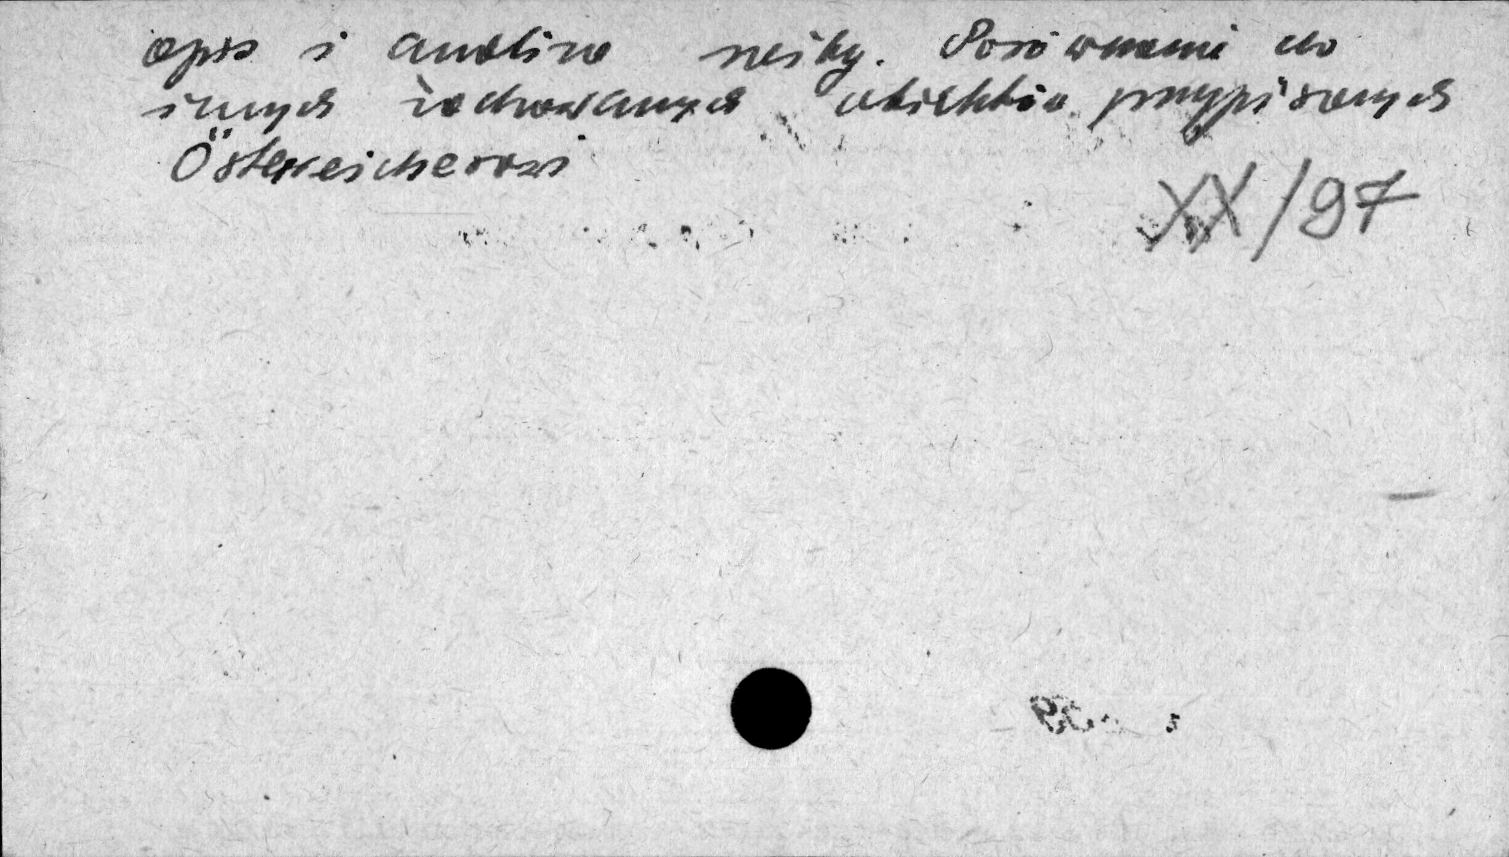 opis i analiza rzeźby. Porównanie do
innych zachowanych obiektów przypisanych
Östereicherowi
XX/97